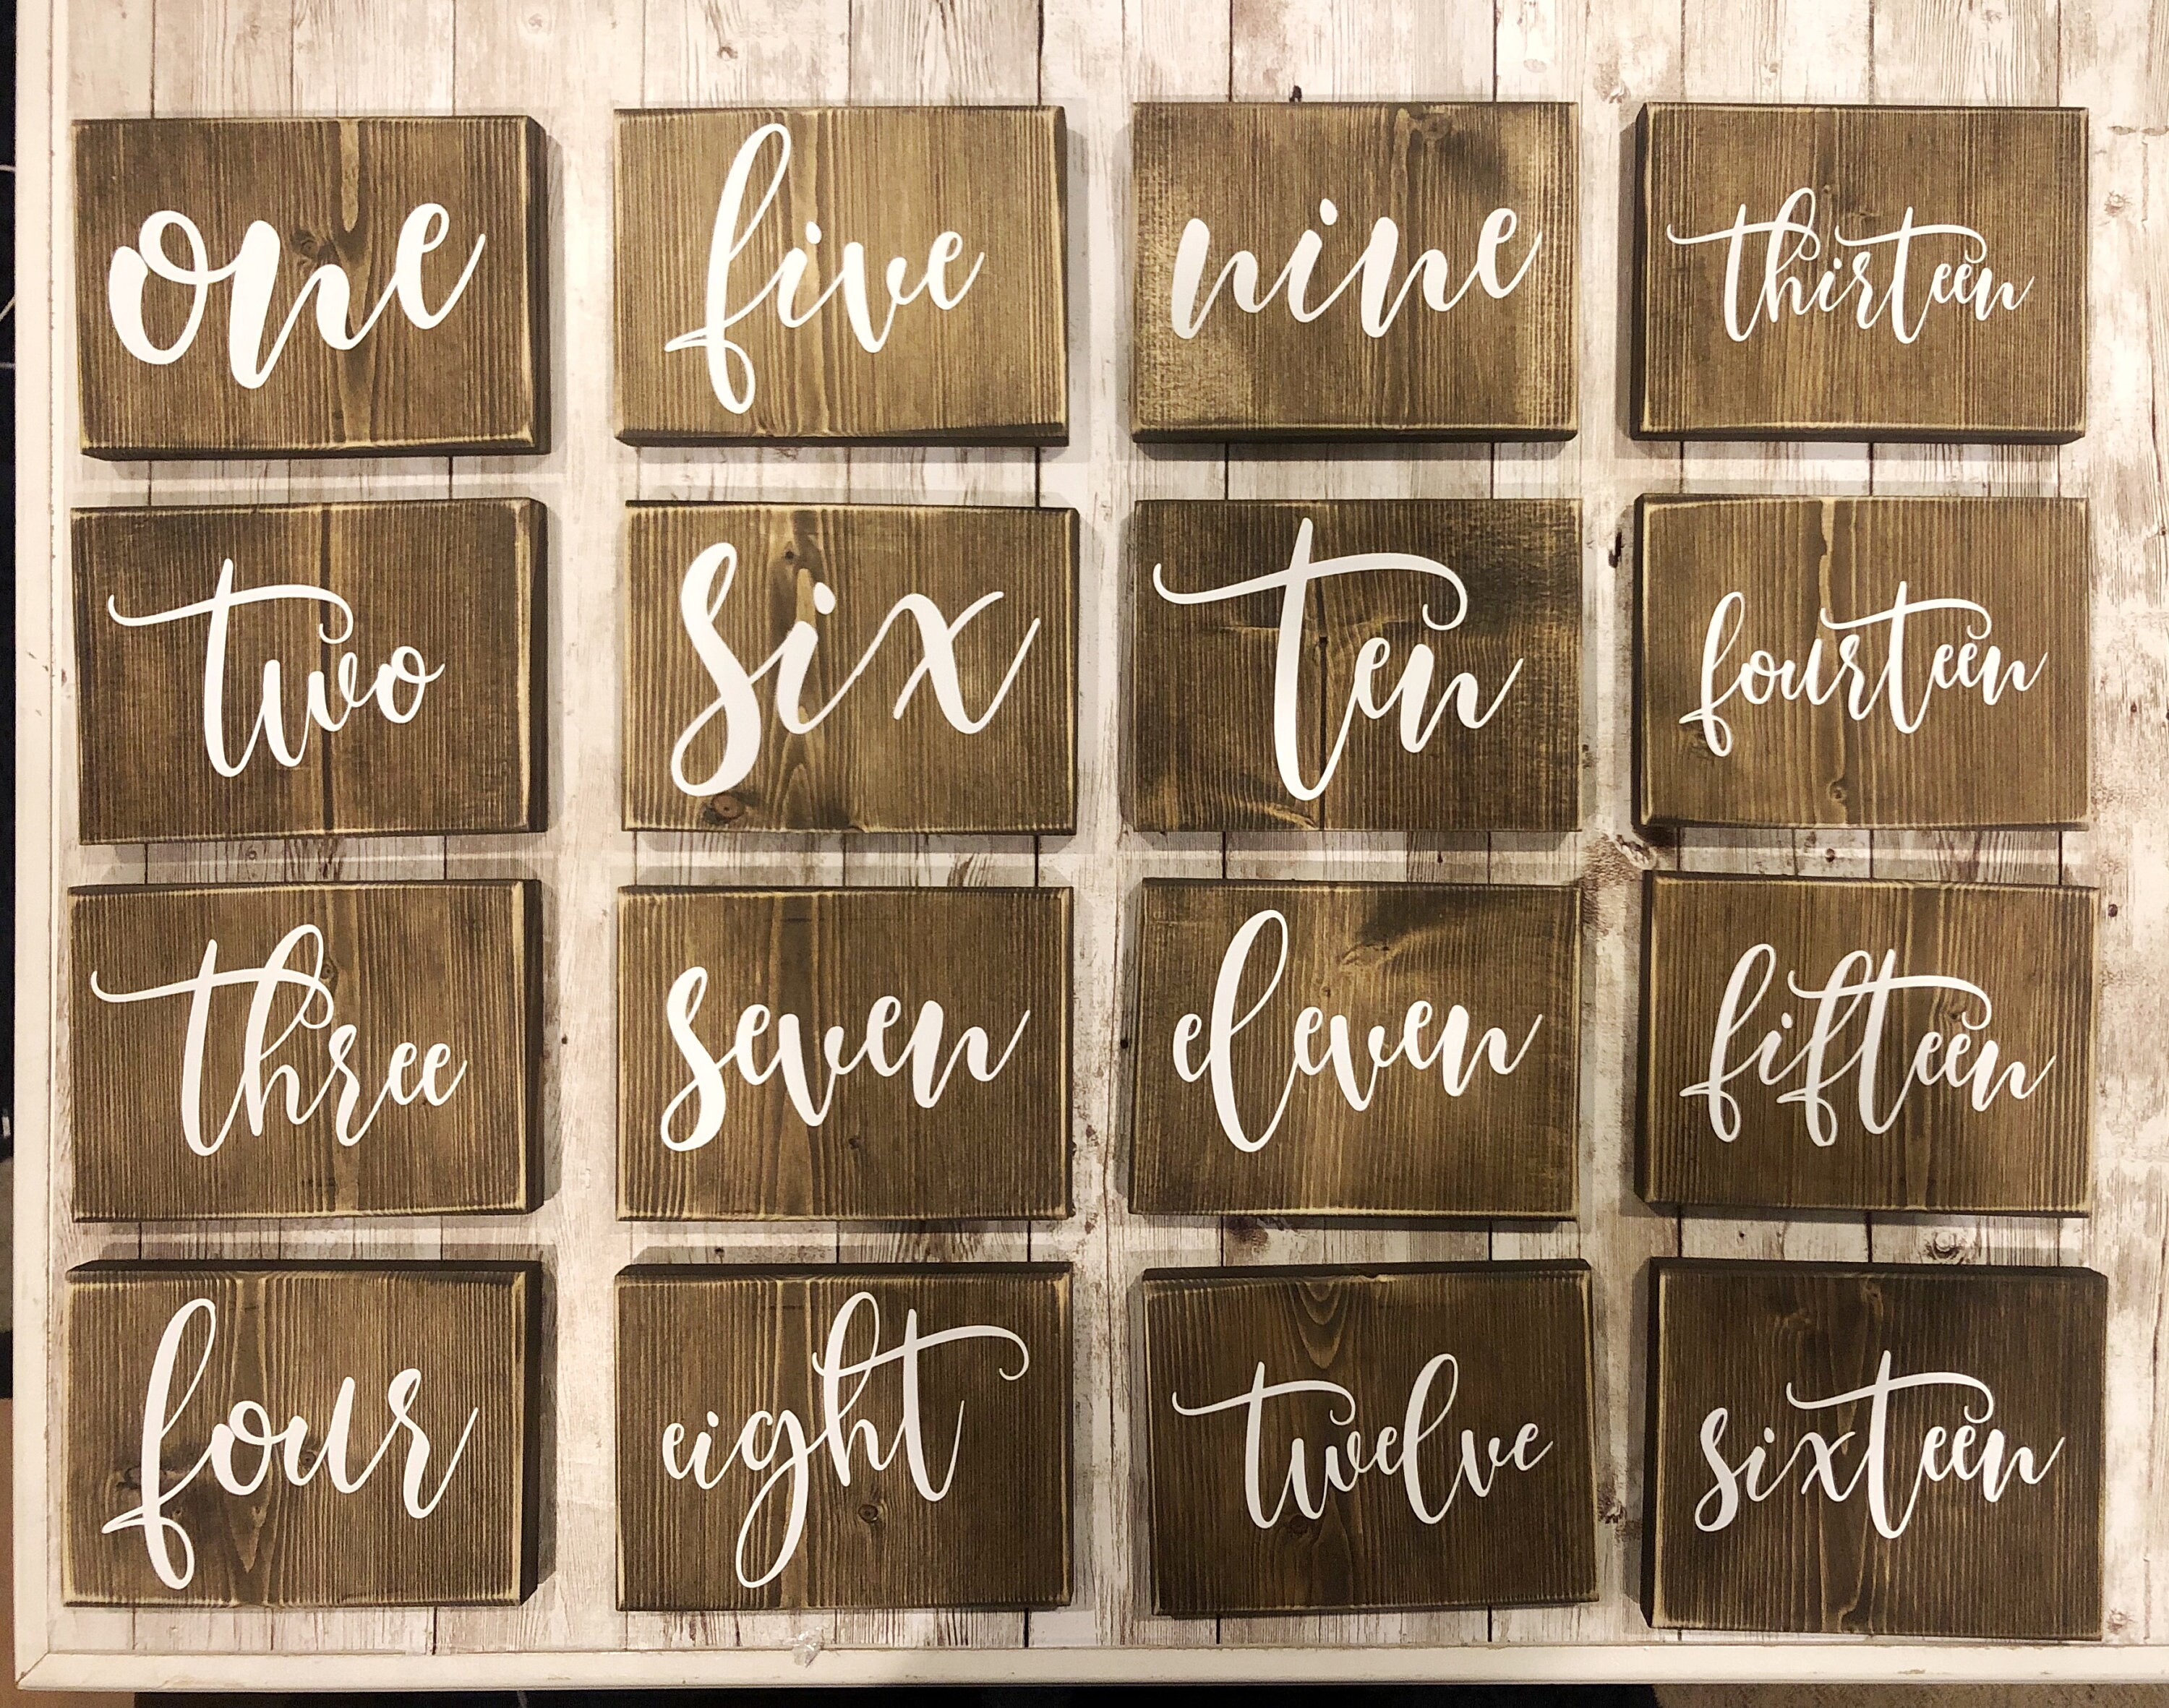 one
two
three
four
five
six
seven
eight
nine
ten
eleven
twelve
thirteen
fourteen
fifteen
sixteen